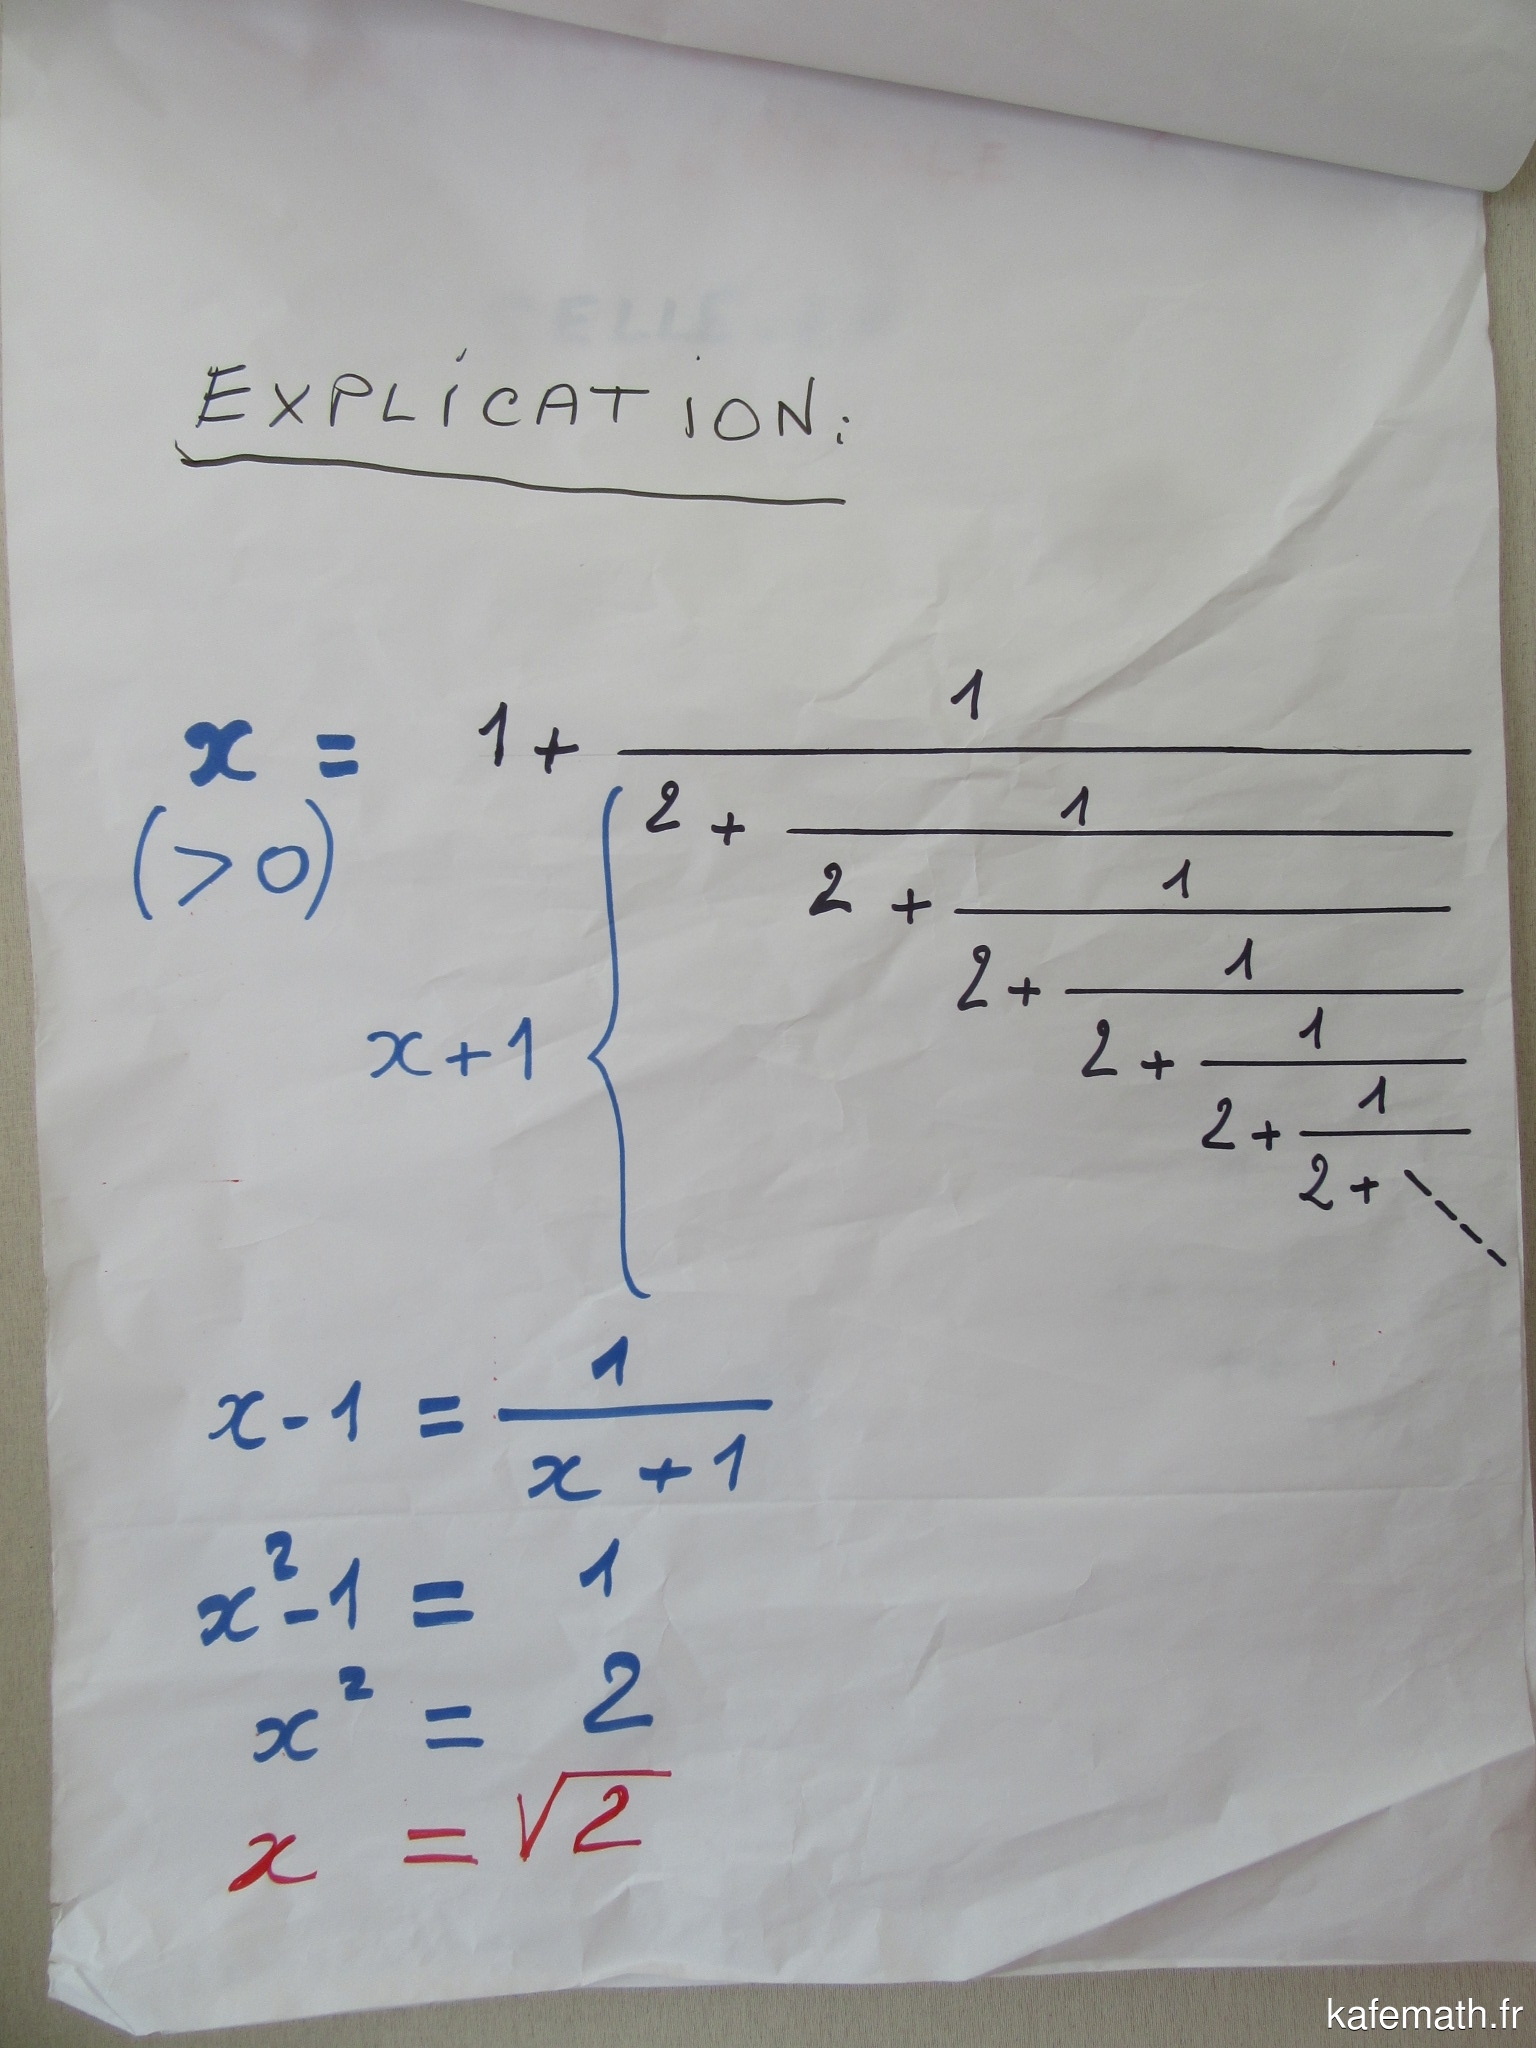 EXPLICATION:
x = 1 + 1
(>0)
2 + 1
2 + 1
2 + 1
x + 1
2 + 1
2 + 1
2 +
x - 1 = 1
x + 1
x² - 1 = 1
x² = 2
x = √2
kafemath.fr